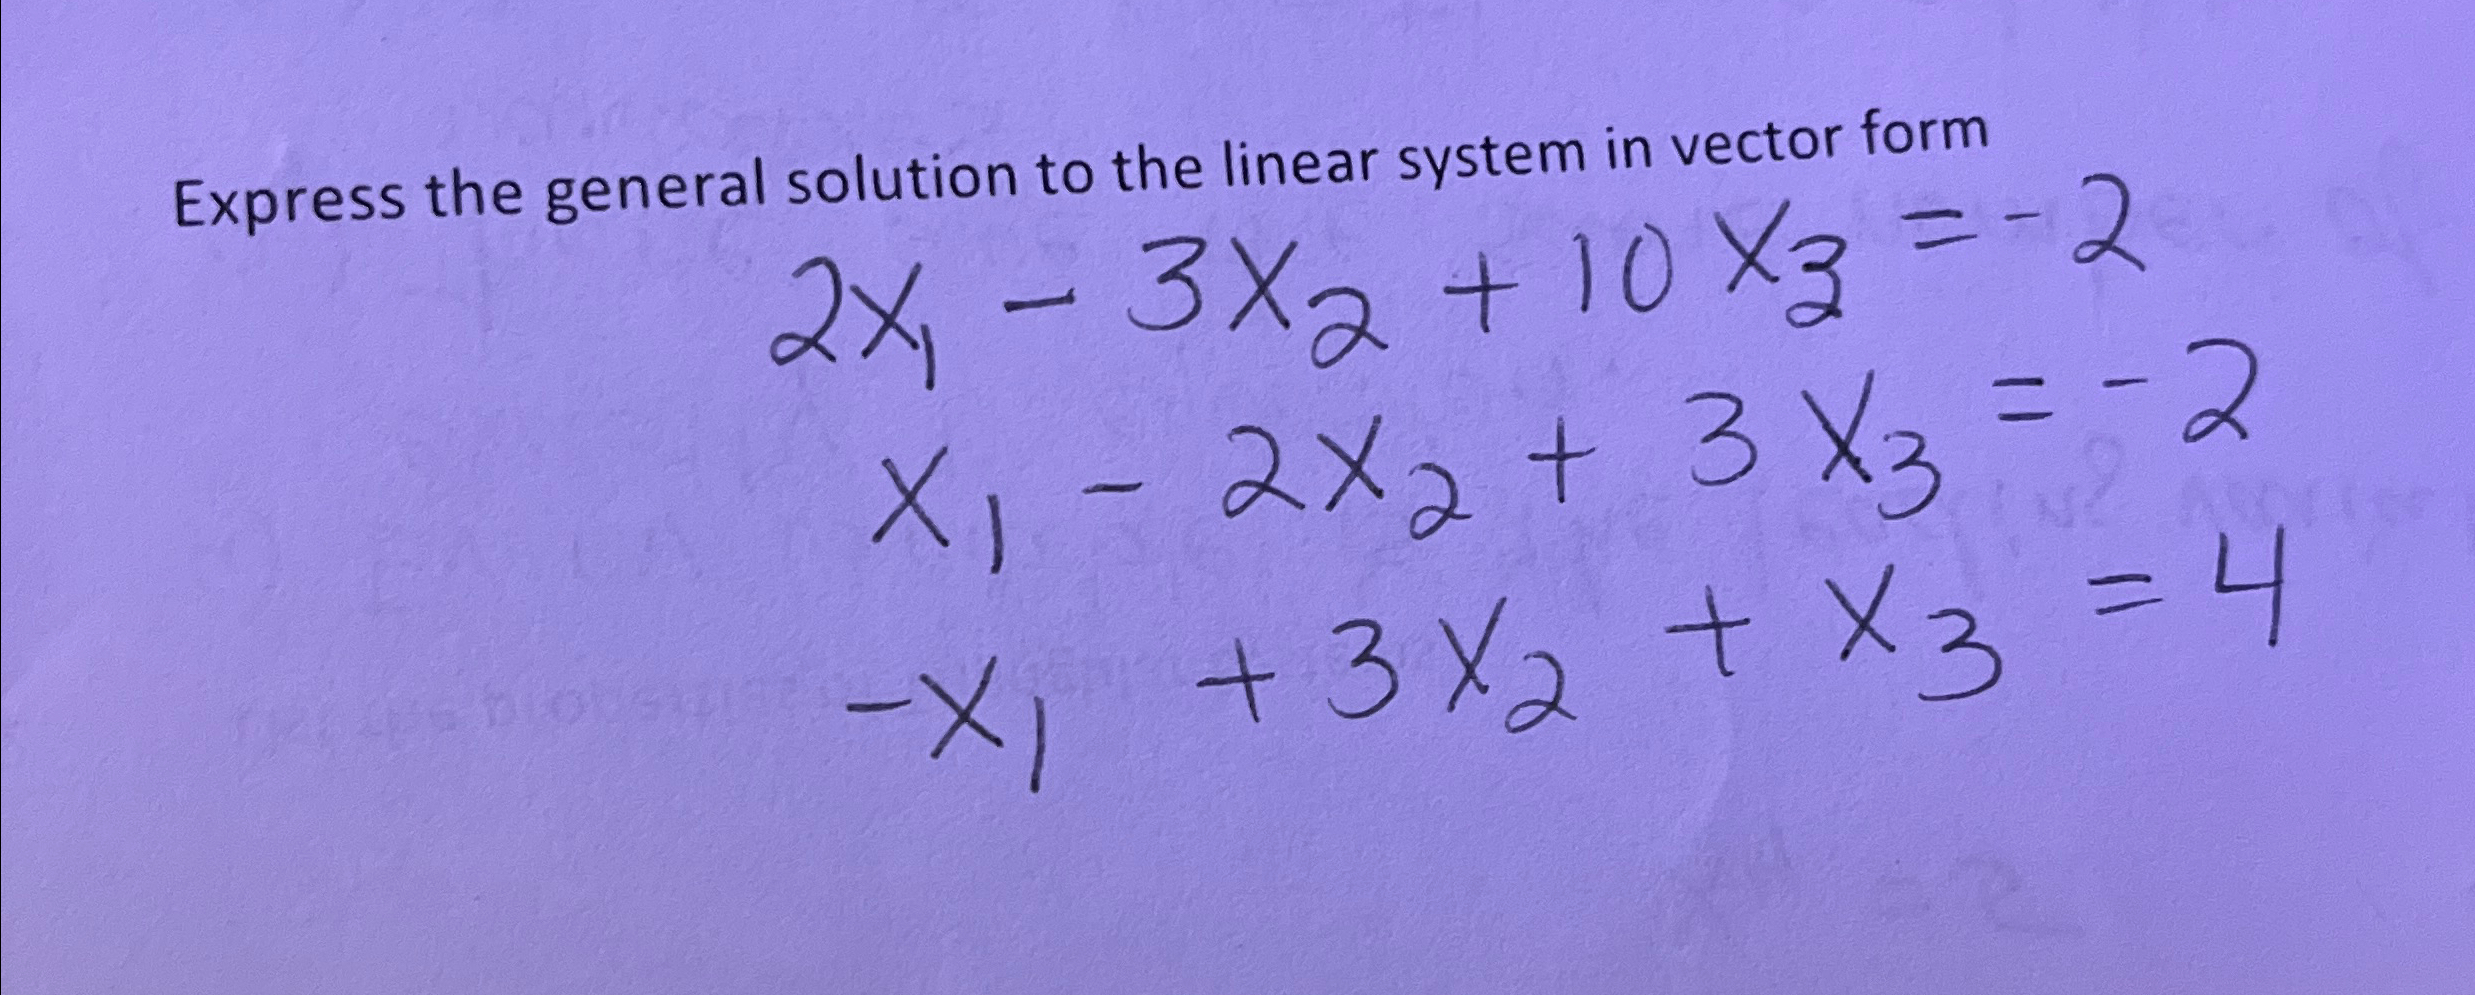 Express the general solution to the linear system in vector form
2x₁ - 3x₂ + 10x₃ = -2
x₁ - 2x₂ + 3x₃ = -2
-x₁ + 3x₂ + x₃ = 4